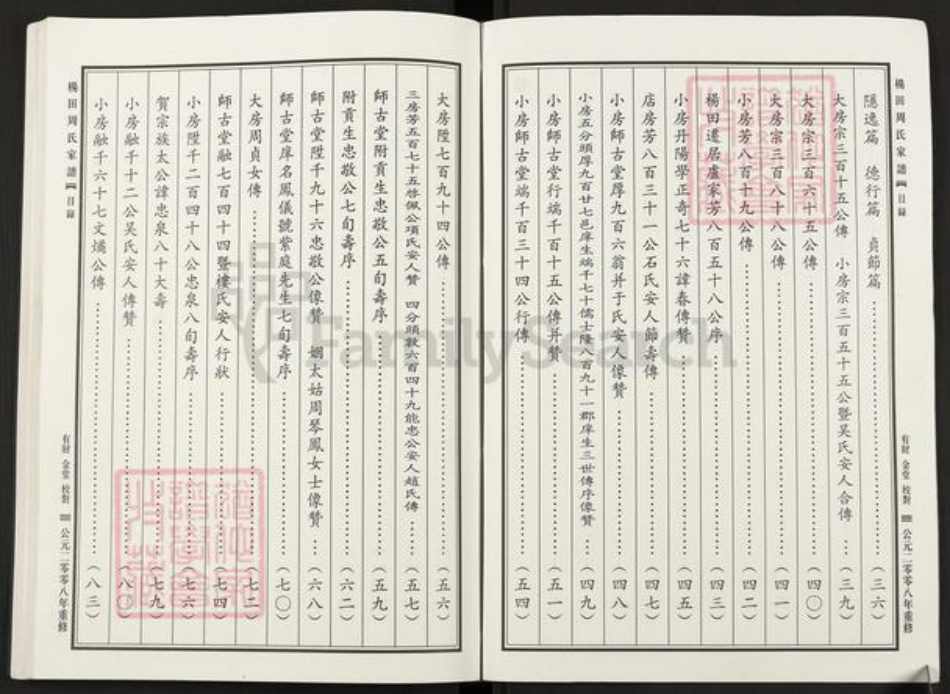 楊田周氏家譜 目錄
有財 金堂 校對 公元二零零八年重修
隱逸篇 德行篇 貞節篇……（三六）
大房宗三百十五公傳 小房宗三百五十五公暨吴氏安人合傳…（三九）
大房宗三百六十五公傳……（四〇）
大房宗三百八十八公傳……（四一）
小房芳八百十九公傳……（四二）
楊田遷居盧家芳八百五十八公序……（四三）
小房丹陽學正奇七十六諱春傳贊……（四五）
店房芳八百三十一公石氏安人節壽傳……（四七）
小房師古堂厚九百六翁并于氏安人像贊……（四八）
小房五分頭厚九百廿七邑庠生端千七十儒士陞八百九十一郡庠生三世傳序像贊……（四九）
小房師古堂行端千百十五公傳并贊……（五一）
小房師古堂端千百三十四公行傳……（五四）
大房陞七百九十四公傳……（五六）
三房芳五百七十五啓佩公項氏安人贊 四分頭敦六百四十九能忠公安人趙氏傳……（五七）
師古堂附貢生忠敬公五旬壽序……（五九）
附貢生忠敬公七旬壽序……（六二）
師古堂陞千九十六忠敬公像贊 姻太姑周琴鳳女士像贊…（六八）
師古堂庠名鳳儀號紫庭先生七旬壽序……（七〇）
大房周貞女傳……（七二）
師古堂融七百四十四暨樓氏安人行狀……（七四）
小房陞千二百四十八公忠泉八旬壽序……（七六）
賀宗族太公諱忠泉八十大壽……（七九）
小房融千十二公吴氏安人傳贊……（八〇）
小房融千六十七文燏公傳……（八三）
楊田周氏家譜 目錄
有財 金堂 校對 公元二零零八年重修
FamilySearch